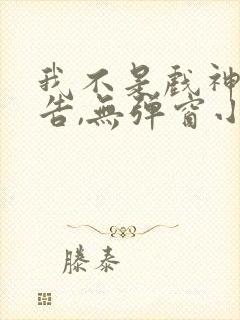 我不是戲神
告,無彈窗小
滕泰